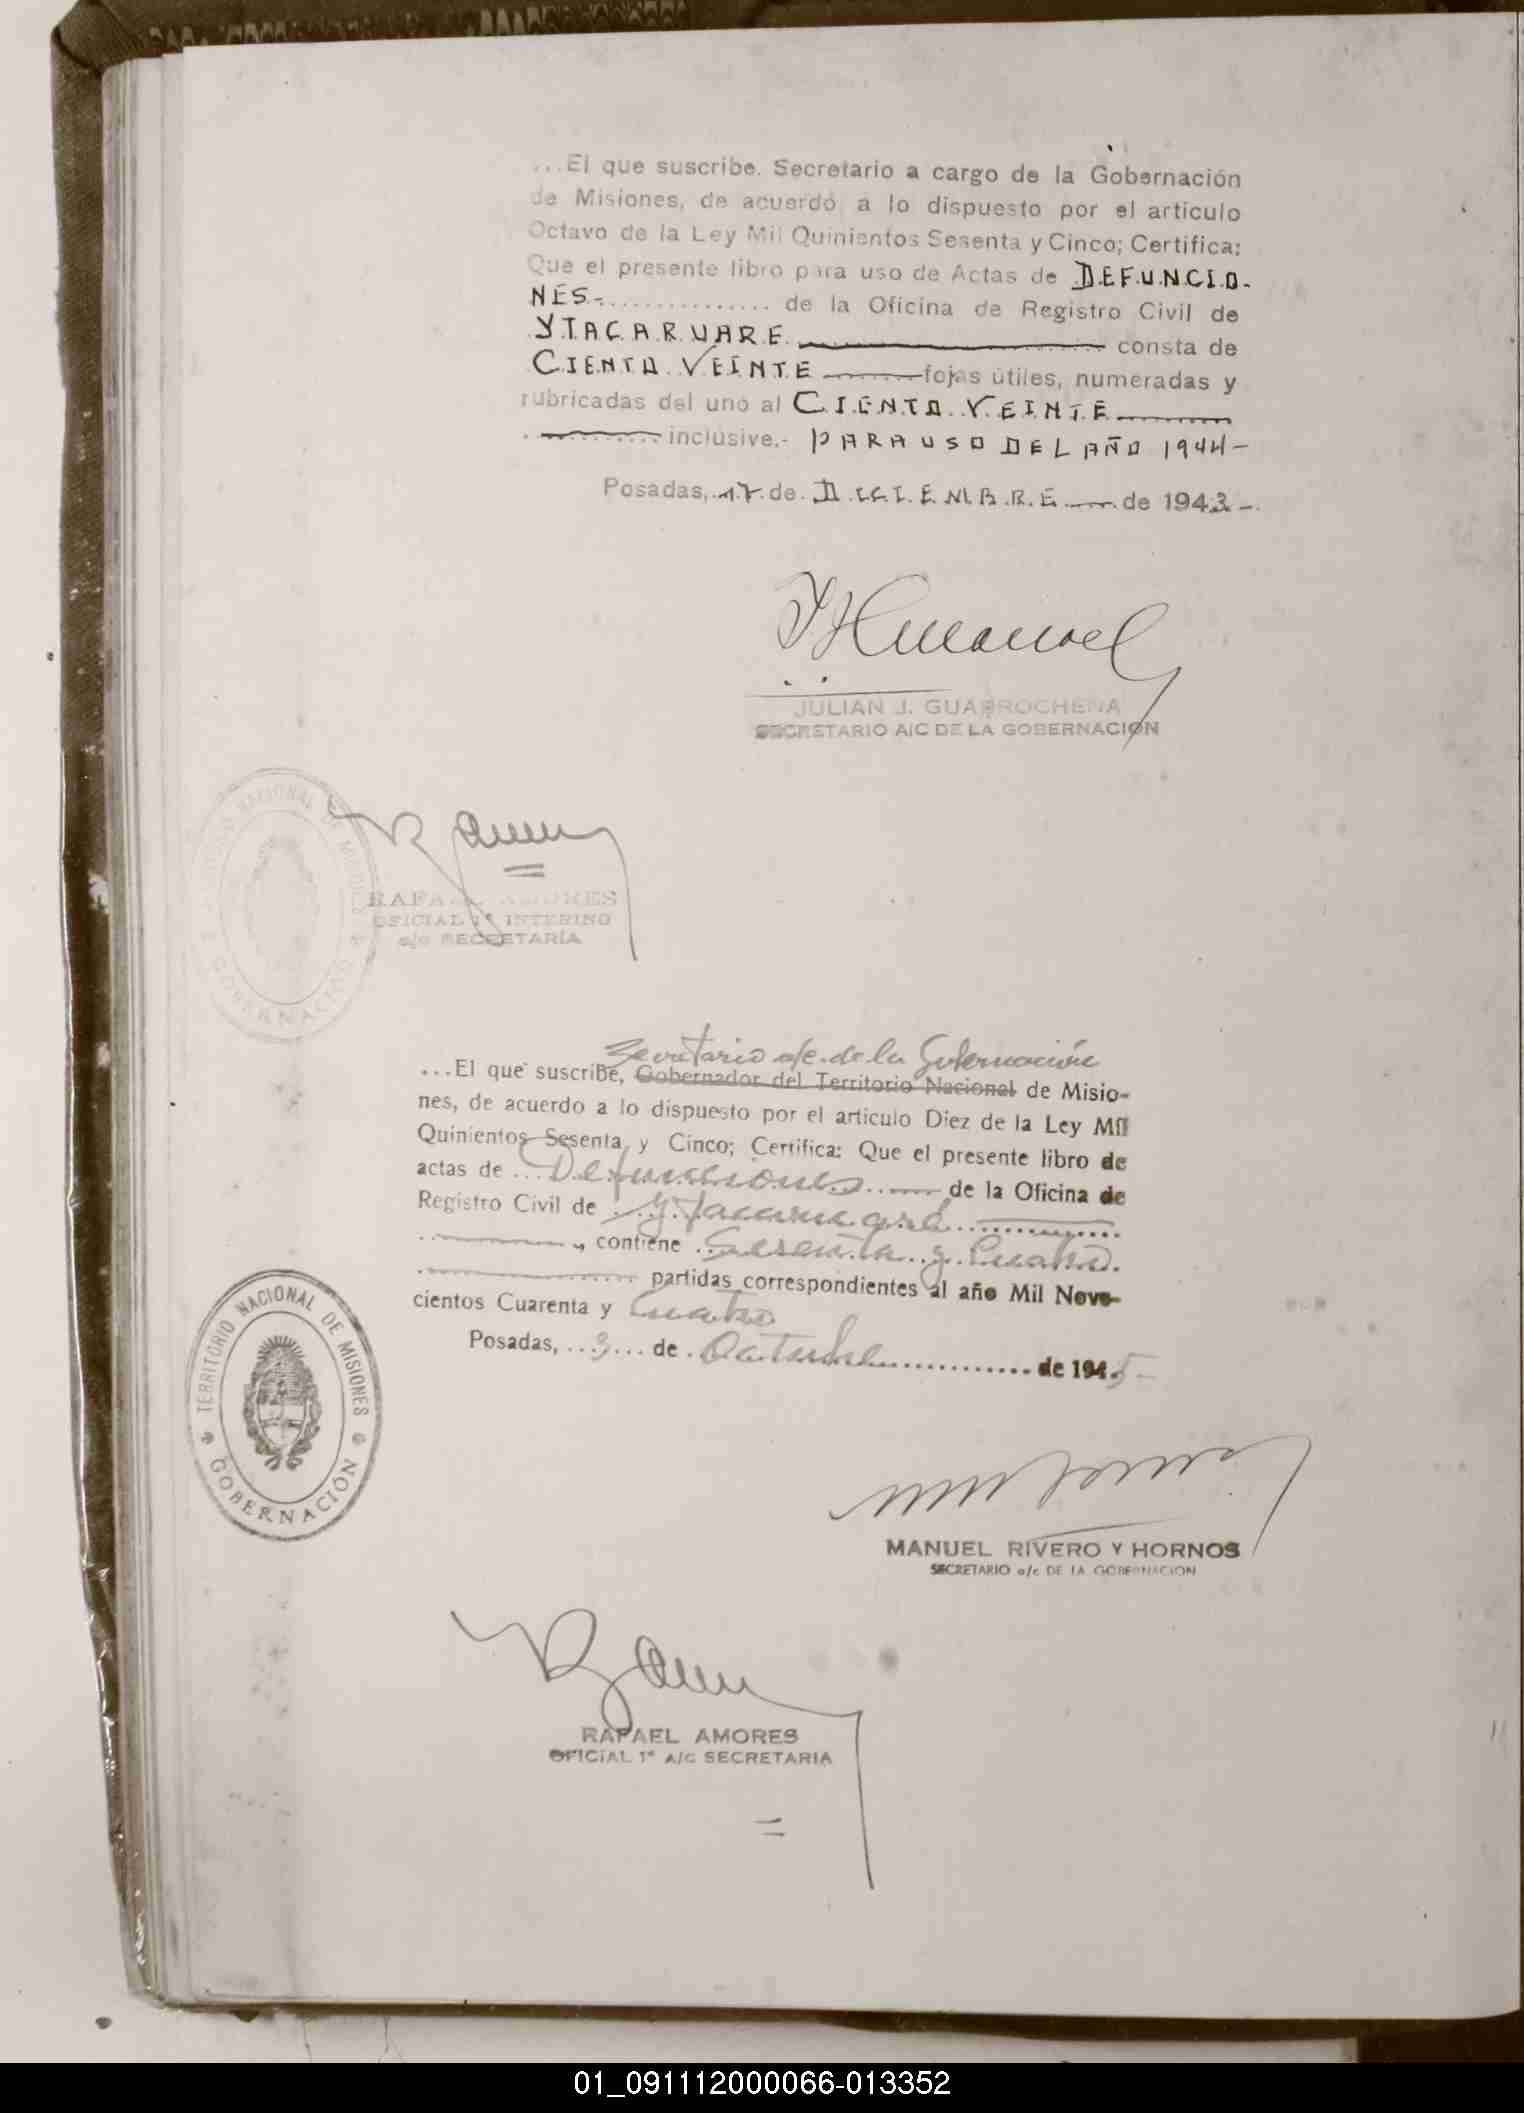 ...El que suscribe. Secretario a cargo de la Gobernación
de Misiones, de acuerdo a lo dispuesto por el articulo
Octavo de la Ley Mil Quinientos Sesenta y Cinco; Certifica:
Que el presente libro para uso de Actas de DEFUNCIO-
NES.- de la Oficina de Registro Civil de
YTACARUARE consta de
CIENTO VEINTE fojas útiles, numeradas y
rubricadas del uno al CIENTO VEINTE
inclusive.- PARA USO DEL AÑO 1944-
Posadas, 17 de DICIEMBRE de 1943-.
JULIAN J. GUARROCHENA
SECRETARIO A/C DE LA GOBERNACION
TERRITORIO NACIONAL DE MISIONES
GOBERNACIÓN
RAFAEL AMORES
OFICIAL 1º INTERINO
a/c SECRETARÍA
Secretario a/c. de la Gobernación
...El que suscribe, Gobernador del Territorio Nacional de Misio-
nes, de acuerdo a lo dispuesto por el articulo Diez de la Ley Mil
Quinientos Sesenta y Cinco; Certifica: Que el presente libro de
actas de Defunciones de la Oficina de
Registro Civil de Ytacaruaré
, contiene Sesenta y Cuatro
partidas correspondientes al año Mil Nove-
cientos Cuarenta y Cuatro
Posadas, 3 de Octubre de 1945-
TERRITORIO NACIONAL DE MISIONES
GOBERNACIÓN
MANUEL RIVERO Y HORNOS
SECRETARIO a/c DE LA GOBERNACION
RAFAEL AMORES
OFICIAL 1º A/C SECRETARIA
01_091112000066-013352